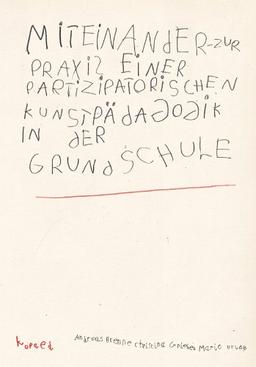 MITEINANDER-ZUR
PRAXIS EINER
PARTIZIPATORISCHEN
KUNSTPÄDAGOGIK
IN DER
GRUNDSCHULE
kopaed Andreas Brenne Christina Griebel Mario Urlaß